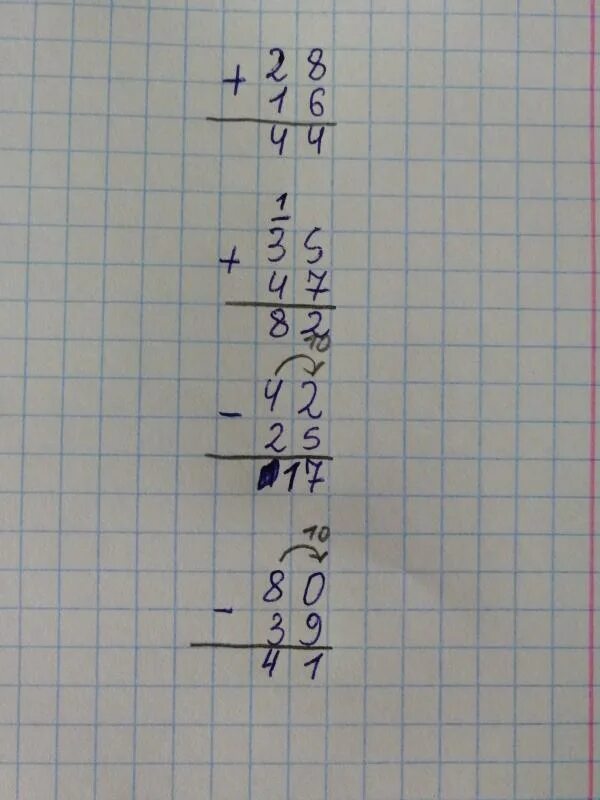 + 28
16
44
1
+ 35
47
82
10
- 42
25
17
10
- 80
39
41